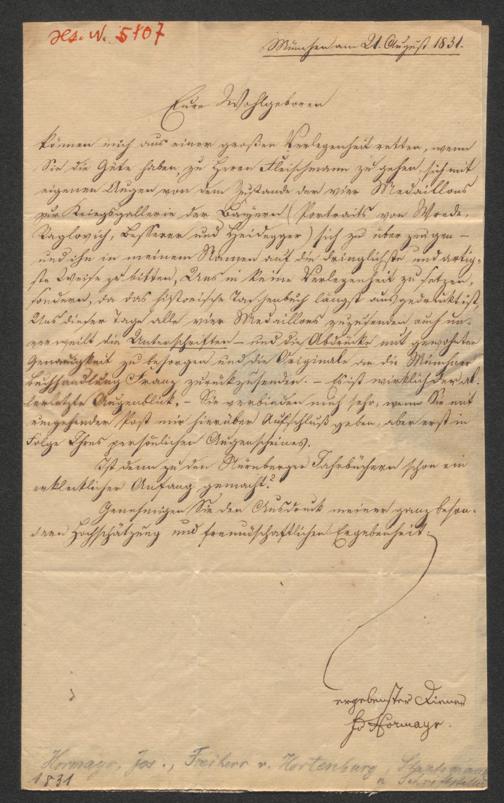 Hs. N. 5107
München am 21. August 1831.
Eure Wohlgeboren
können mich aus einer großen Verlegenheit retten, wenn
Sie die Güte haben, zu Herrn Fleischmann zu gehen, sich mit
eigenen Augen von dem Zustande der vier Medaillons
zur Kriegsgallerie der Bayern (Portraits von Wrede,
Raglovich, Besserer und Heidegger) sich zu überzeugen –
und ihn in meinem Namen auf die dringlichste und artig-
ste Weise zu bitten, Uns in keine Verlegenheit zu setzen,
sondern, da das historische Taschenbuch längst ausgedruckt ist,
Uns dieser Tage alle vier Medaillons zuzusenden auch un-
verweilt die Unterschriften – und die Abdrücke mit gewohnter
Genauigkeit zu besorgen und die Originale an die Münchner
Buchhandlung Franz zurückzusenden. – Es ist wirklich der al-
lerletzte Augenblick. – Sie verbinden mich sehr, wenn Sie mit
umgehender Post mir hierüber Aufschluß geben, aber erst in
Folge Ihres persönlichen Augenscheines.
Ist denn zu den Nürnberger Jahrbüchern schon ein
erklecklicher Anfang gemacht?
Genehmigen Sie den Ausdruck meiner ganz beson-
dern Hochschätzung und freundschaftlichen Ergebenheit.
ergebenster Diener
Hormayr.
Hormayr, Jos., Freiherr v. Hortenburg Staatsmann
1831 u. Schriftsteller